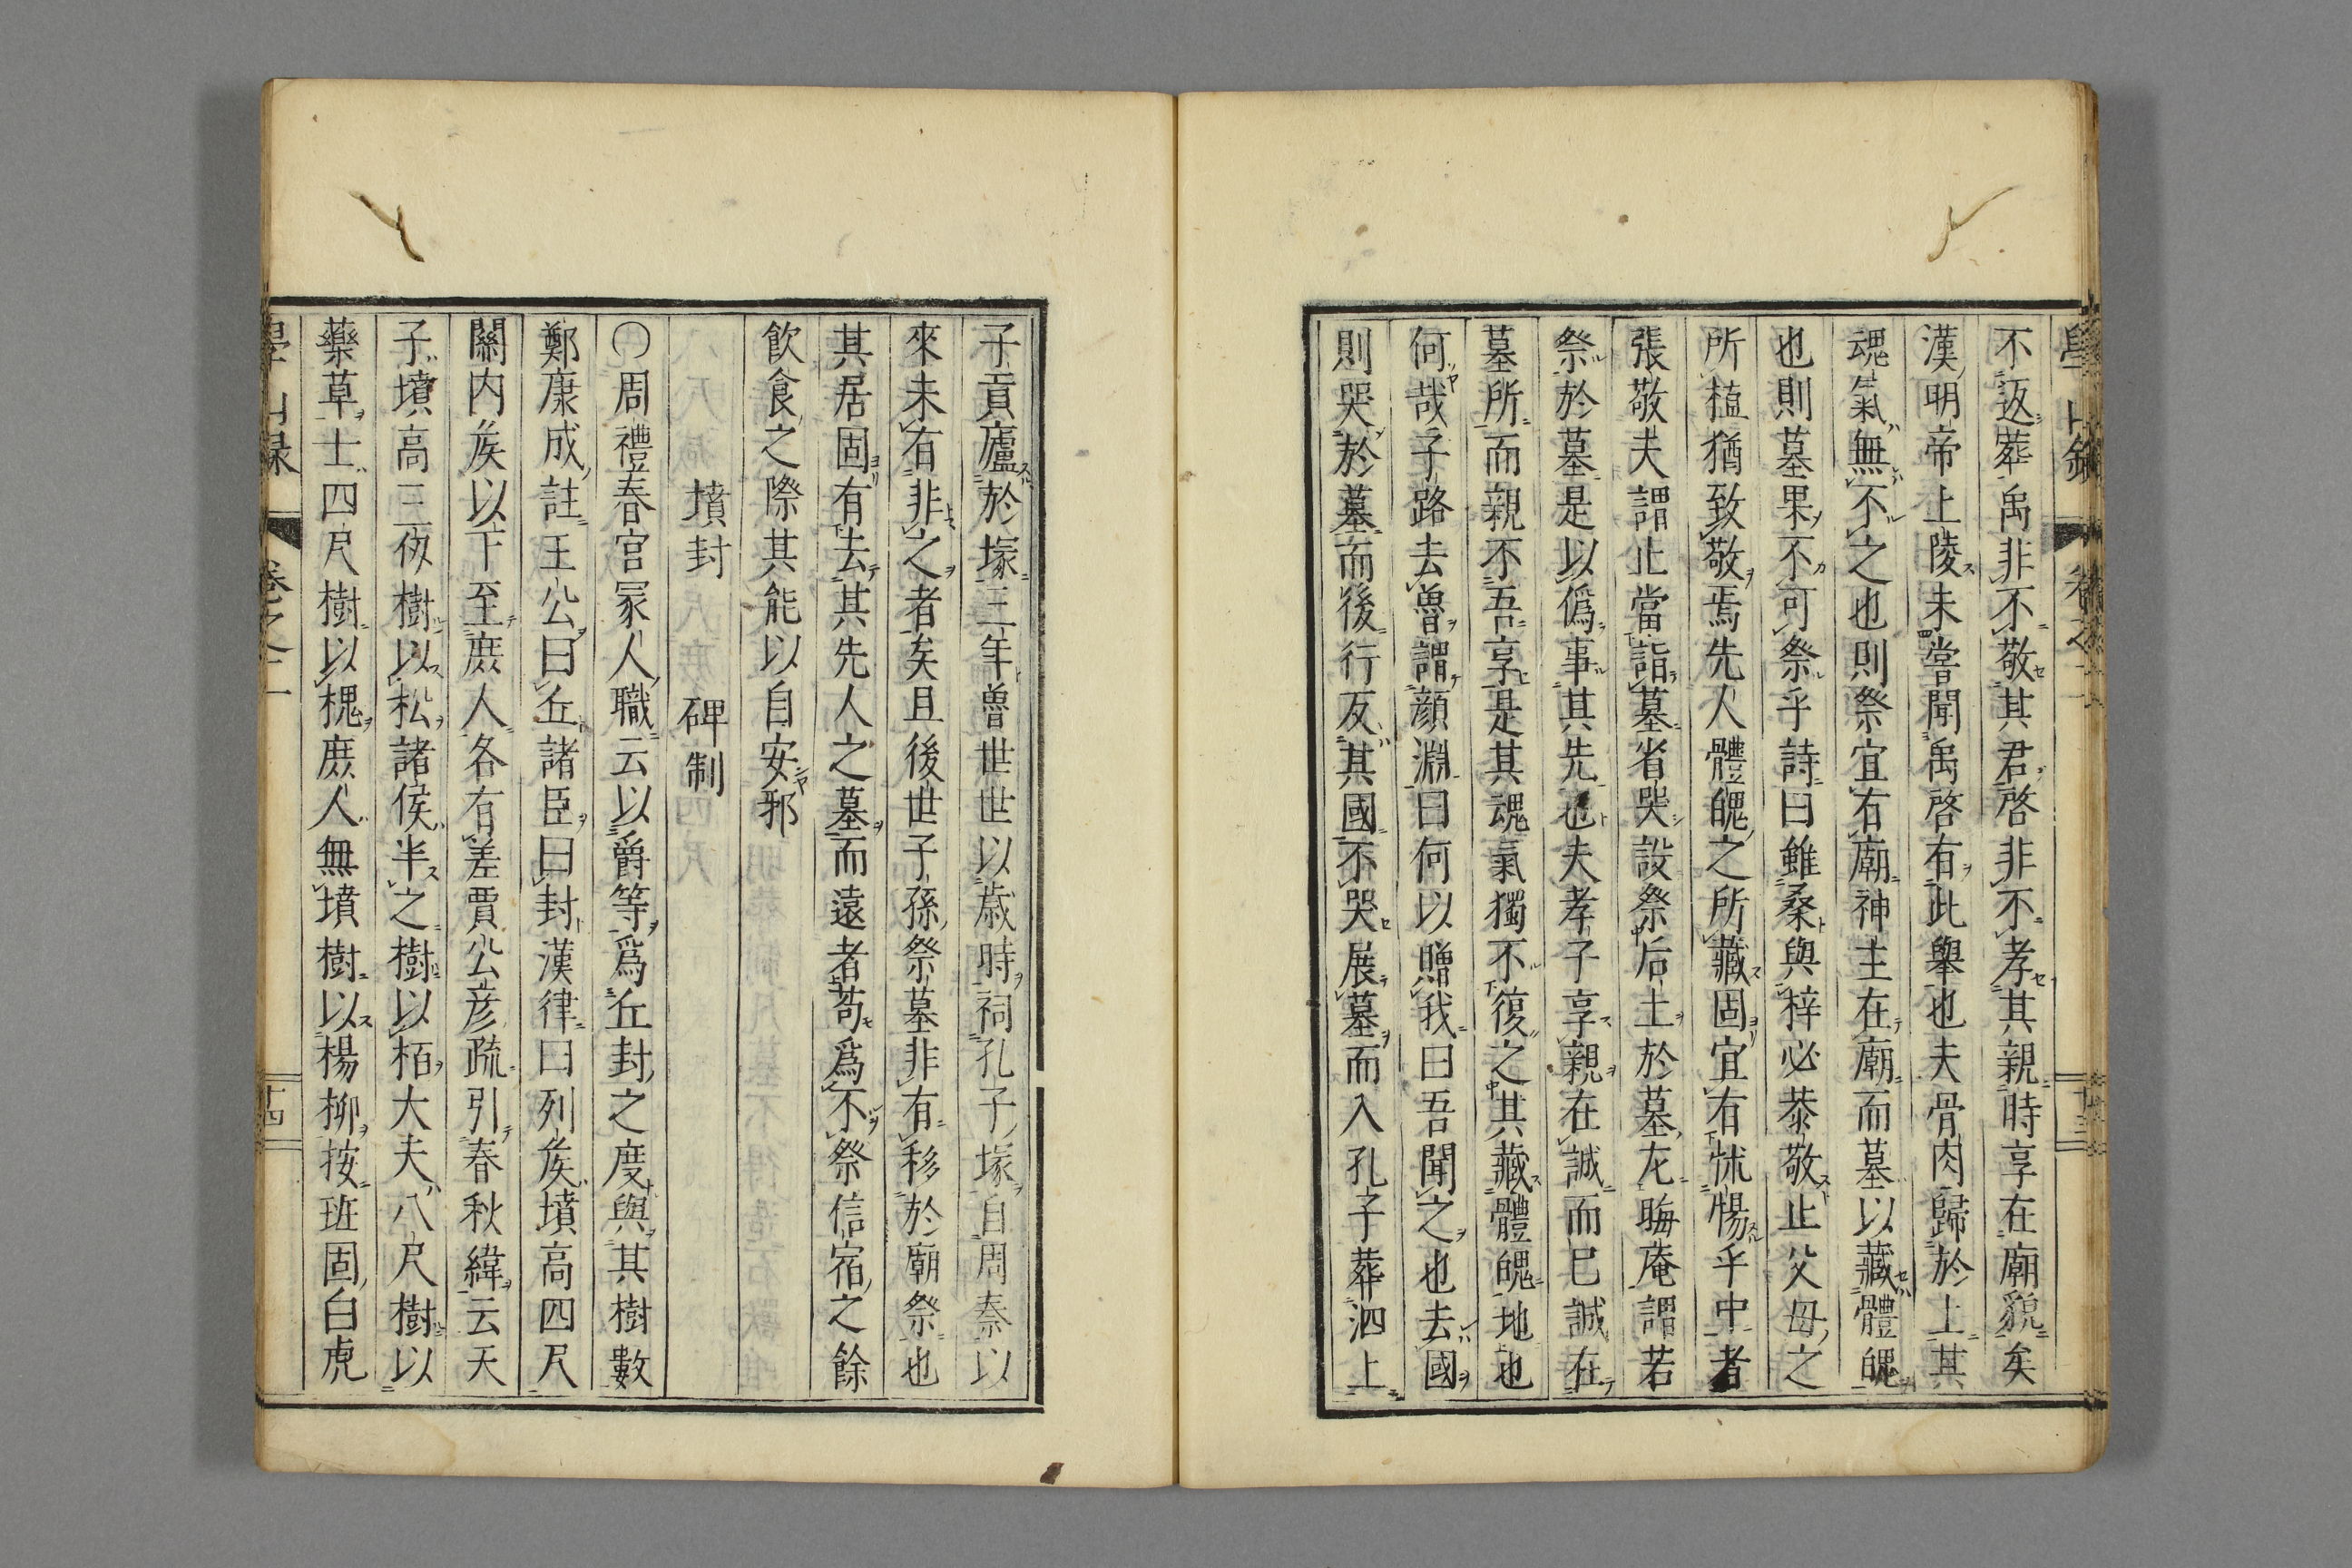 不返葬禹非不敬其君啓非不孝其親時享在廟貌矣
漢明帝上陵未嘗聞禹啓有此舉也夫骨肉歸於土其
魂氣無不之也則祭宜有廟神主在廟而墓以藏體魄
也則墓果不可祭乎詩曰雖桑與梓必恭敬止父母之
所植猶致敬焉先人體魄之所藏固宜有怵惕乎中者
張敬夫謂止當詣墓省哭設祭后土於墓左晦庵謂若
祭於墓是以僞事其先也夫孝子享親在誠而已誠在
墓所而親不吾享是其魂氣獨不復之其藏體魄地也
何哉子路去魯謂顔淵曰何以贈我曰吾聞之也去國
則哭於墓而後行反其國不哭展墓而入孔子葬泗上
子貢廬於塚三年魯世世以歳時祠孔子塚自周秦以
來未有非之者矣且後世子孫祭墓非有移於廟祭也
其居固有去其先人之墓而遠者苟爲不祭信宿之餘
飲食之際其能以自安邪
墳封　碑制
〇周禮春官冢人職云以爵等爲丘封之度與其樹數
鄭康成註王公曰丘諸臣曰封漢律曰列矦墳高四尺
關内矦以下至庶人各有差賈公彦疏引春秋緯云天
子墳高三仭樹以松諸侯半之樹以栢大夫八尺樹以
藥草士四尺樹以槐庶人無墳樹以楊柳按班固白虎
卷之二
十四